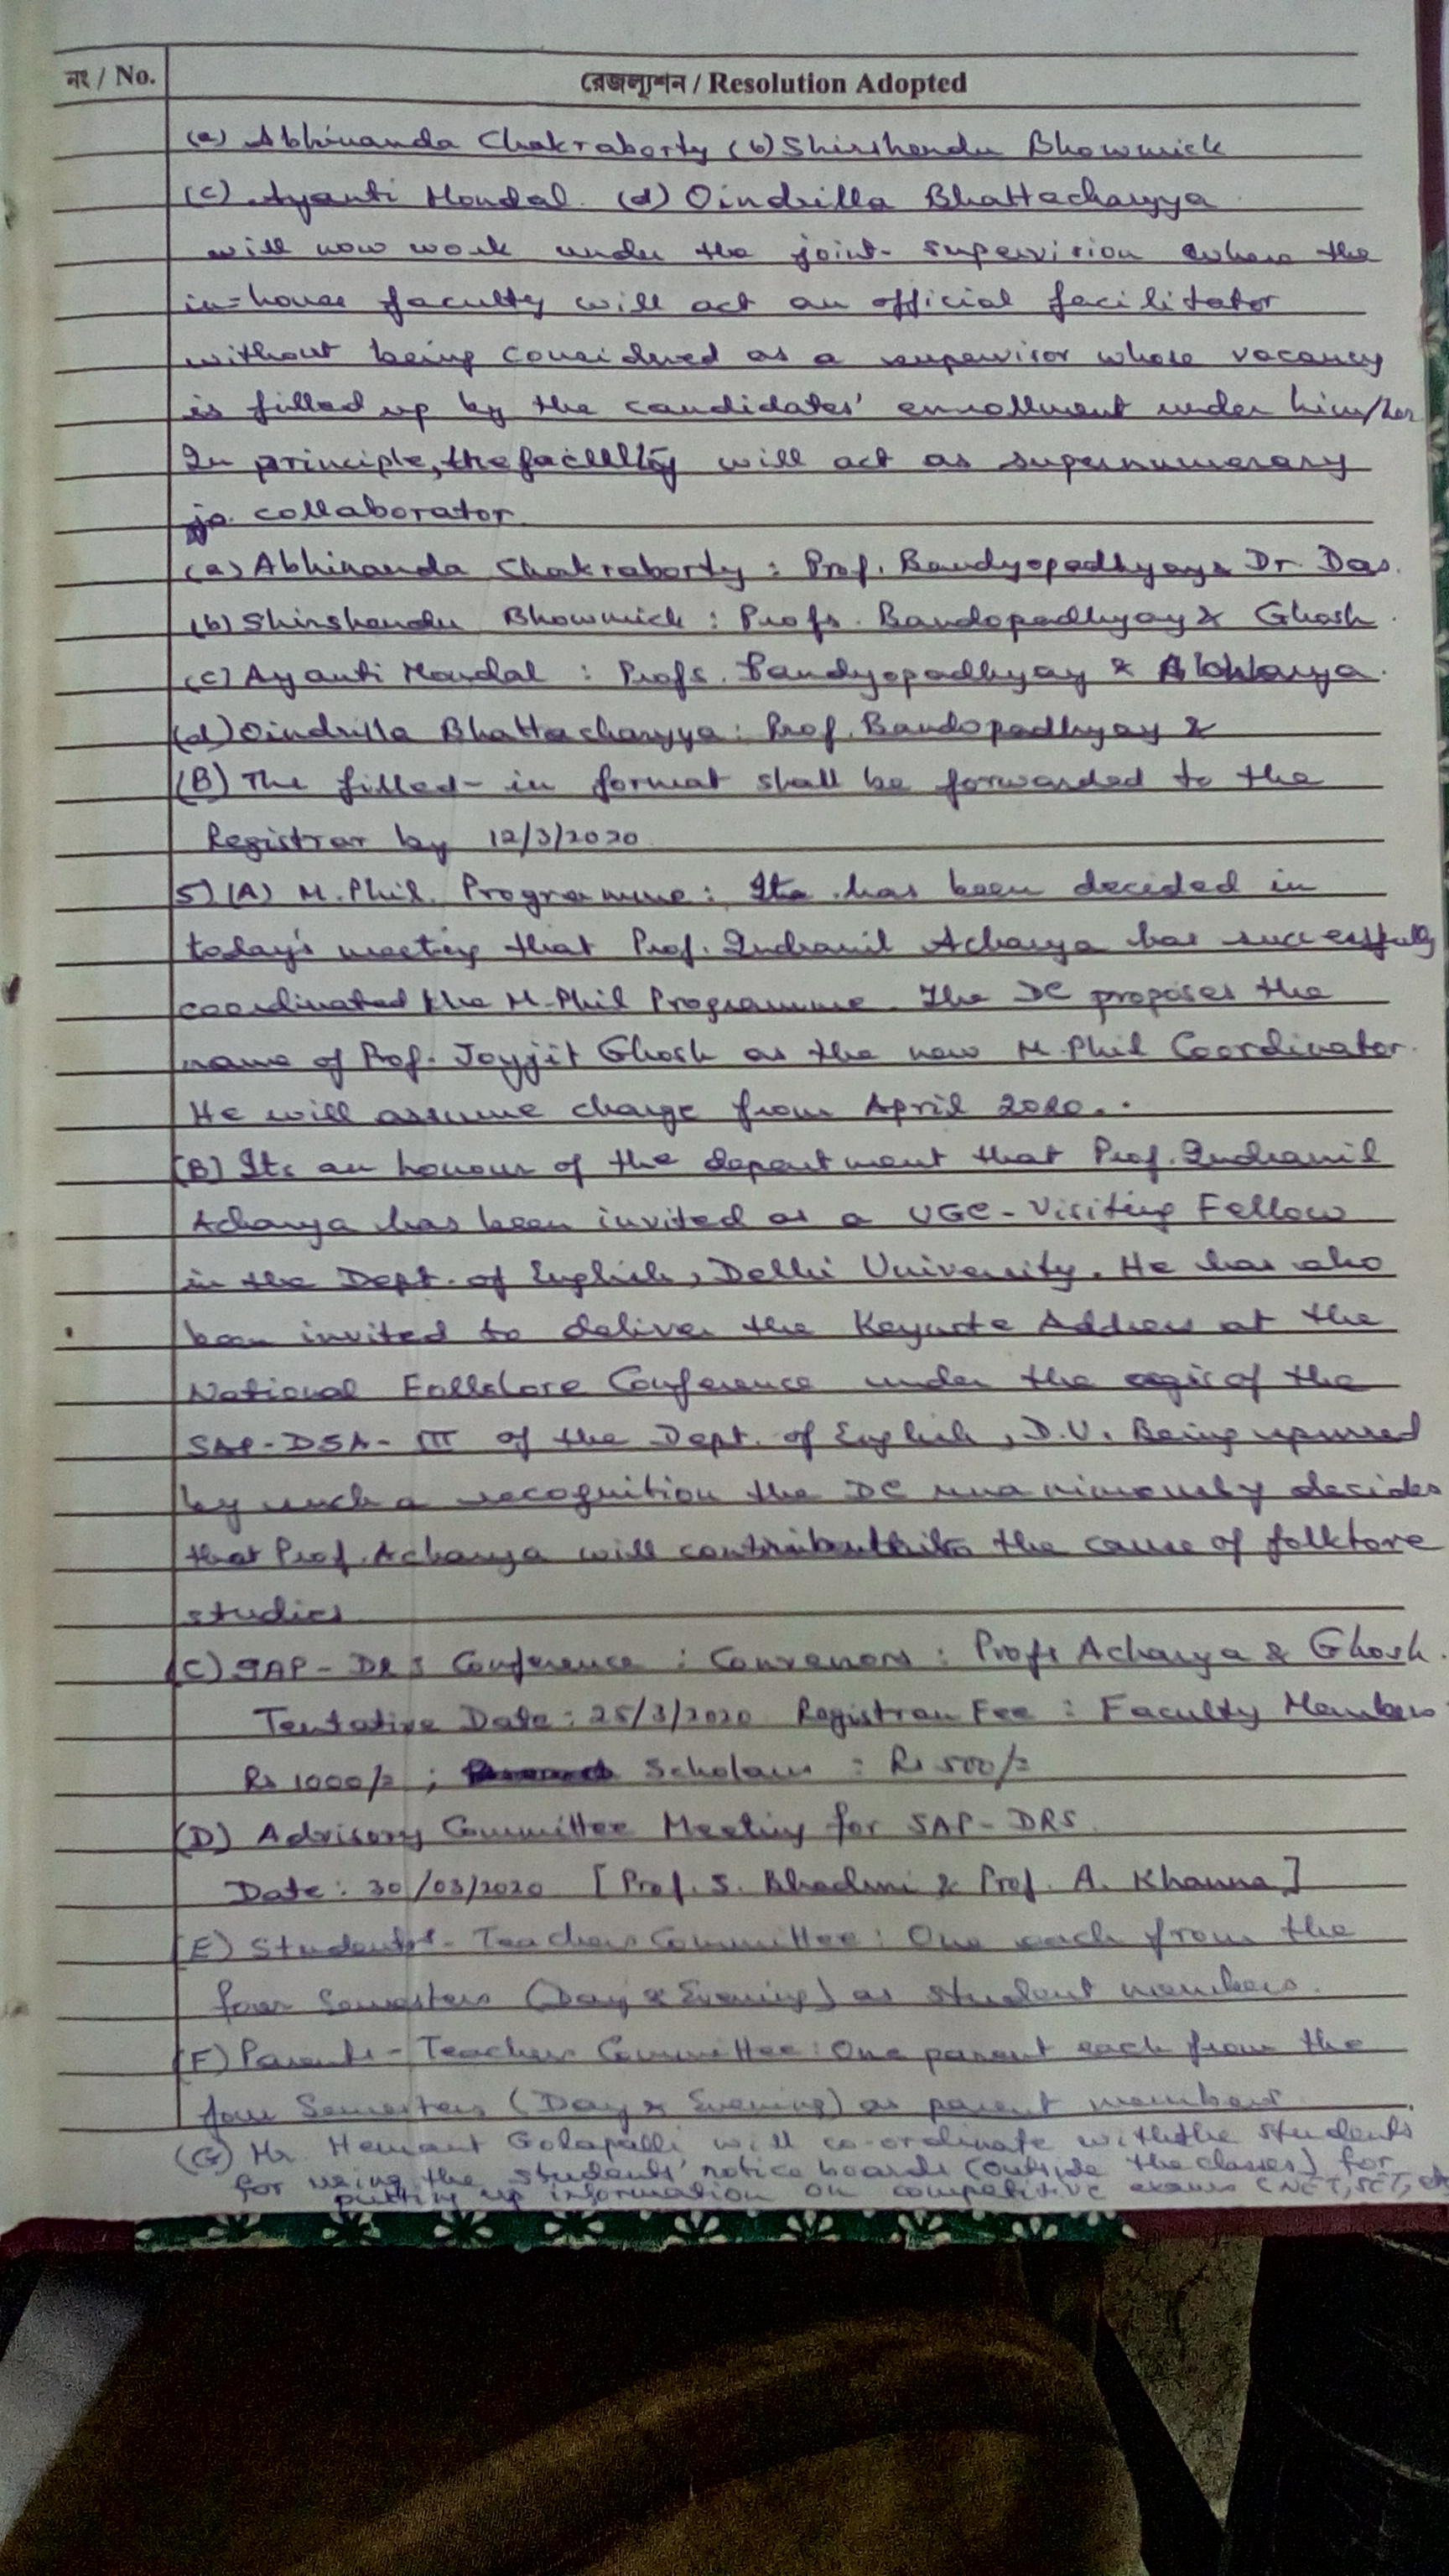 নং / No.
রেজল্যুশন / Resolution Adopted
(a) Abhinanda Chakraborty (b) Shirshendu Bhowmick
(c) Ayanti Mondal. (d) Oindrilla Bhattacharyya
will now work under the joint- supervision where the
in=house faculty will act an official facilitator
without being considered as a supervisor whose vacancy
is filled up by the candidates' enrollment under him/her
In principle, the faculty will act as supernumerary
collaborator
(a) Abhinanda Chakraborty : Prof. Bandyopadhyay & Dr. Das.
(b) Shirshendu Bhowmick : Profs. Bandopadhyay & Ghosh.
(c) Ayanti Mondal : Profs. Bandyopadhyay &
(d) Oindrilla Bhattacharyya : Prof. Bandopadhyay &
(B) The filled-in format shall be forwarded to the
Registrar by 12/3/2020
5) (A) M.Phil. Programme: It has been decided in
today's meeting that Prof. Indranil Acharya has successfully
coordinated the M.Phil Programme. The DC proposes the
name of Prof. Joyjit Ghosh as the new M.Phil Coordinator.
He will assume charge from April 2020..
(B) Its an honour of the department that Prof. Indranil
Acharya has been invited as a UGC-Visiting Fellow
in the Dept. of English, Delhi University. He has also
been invited to deliver the Keynote Address at the
National Folklore Conference under the aegis of the
SAP-DSA-III of the Dept. of English, D.U. Being spurred
by such a recognition the DC unanimously decides
that Prof. Acharya will contribute to the cause of folklore
studies
(C) SAP-DRS Conference : Convenors : Profs Acharya & Ghosh.
Tentative Date : 25/3/2020 Registran Fee : Faculty Members
Rs 1000/= ; Scholars : Rs 500/=
(D) Advisory Committee Meeting for SAP-DRS.
Date : 30/03/2020 [Prof. S. & Prof. A. Khanna]
(E) Students'- Teachers Committee : One each from the
four Semesters (Day & Evening) as student members.
(F) Parents-Teachers Committee : One parent each from the
four Semesters (Day & Evening) as parent members.
(G) Mr. Hemant Golapalli will co-ordinate with the students
for using the students' notice boards (outside the classes) for
putting up information on competitive exams (NET, SET, etc